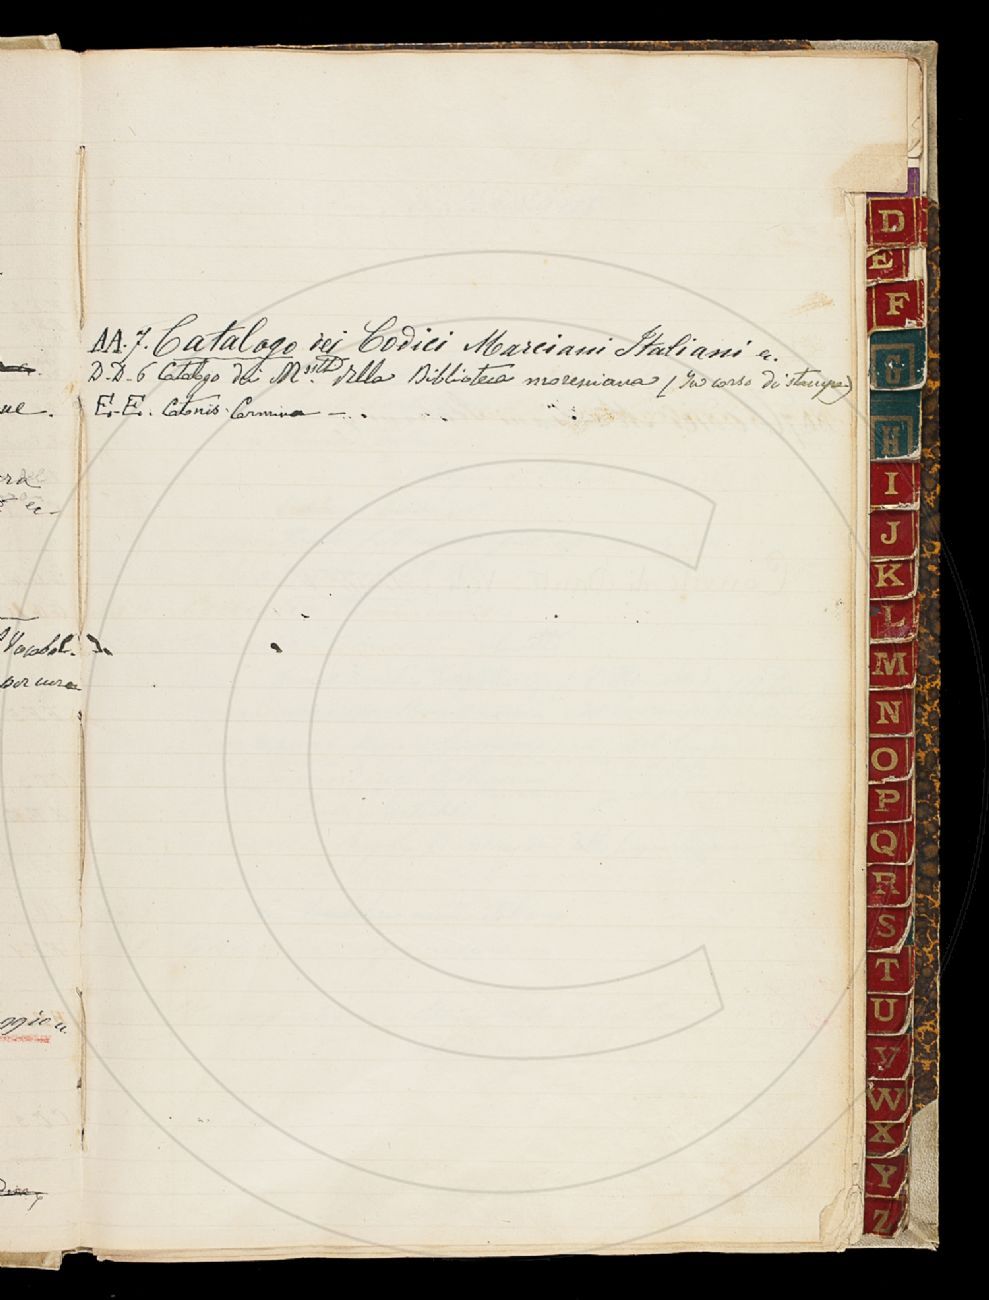 AA. 7. Catalogo dei Codici Marciani Italiani a.
D. D. 6 Catalogo dei M.sitti della Biblioteca moreniana (In corso di stampa)
E. E. Catonis Carmina — . .
ue.
Vocabol.
per cura
ggie
D
E
F
G
H
I
J
K
L
M
N
O
P
Q
R
S
T
U
V
W
X
Y
Z